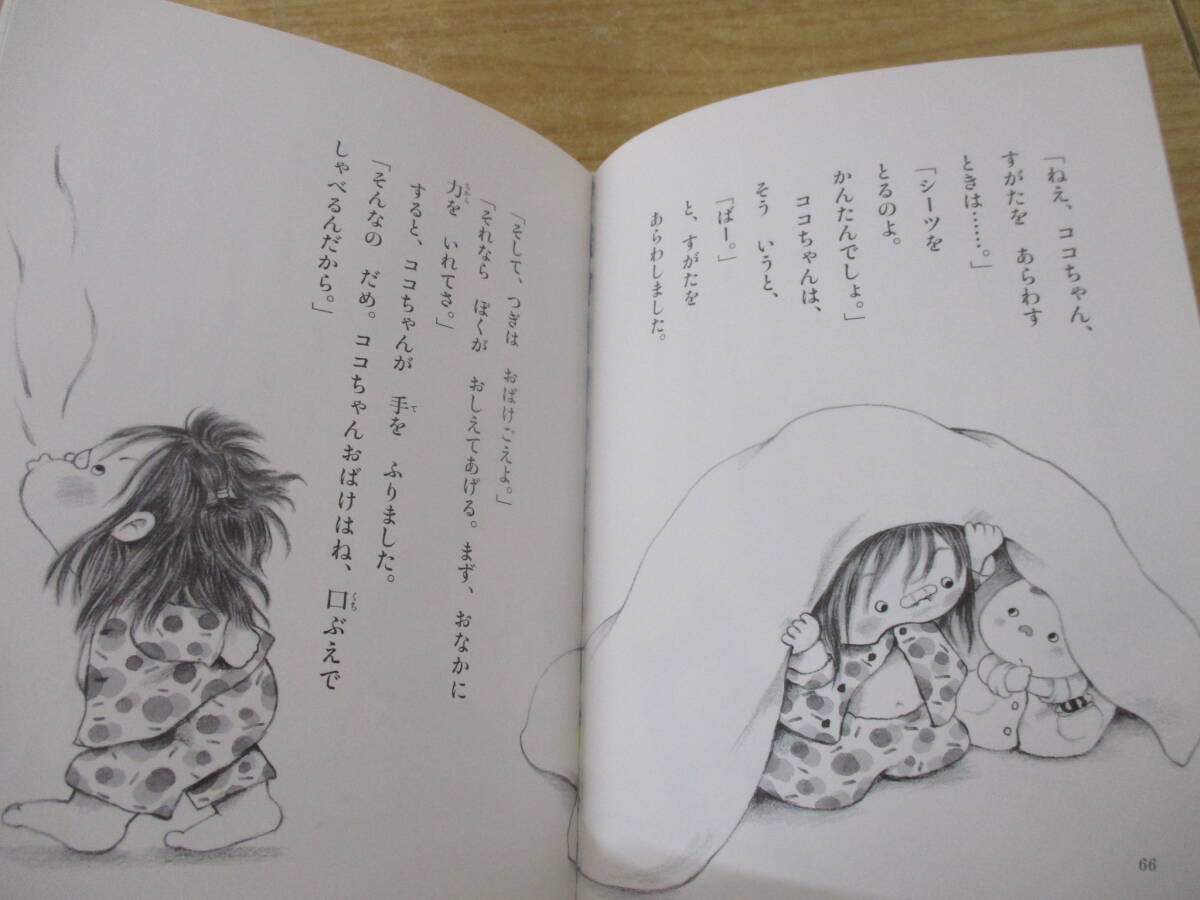 「ねえ、ココちゃん、
すがたを　あらわす
ときは……。」
「シーツを
とるのよ。
かんたんでしょ。」
ココちゃんは、
そう　いうと、
「ばー。」
と、すがたを
あらわしました。
66
「そして、つぎは　おばけごえよ。」
「それなら　ぼくが　おしえてあげる。まず、おなかに
力を　いれてさ。」
ちから
すると、ココちゃんが　手を　ふりました。
て
「そんなの　だめ。ココちゃんおばけはね、口ぶえで
くち
しゃべるんだから。」